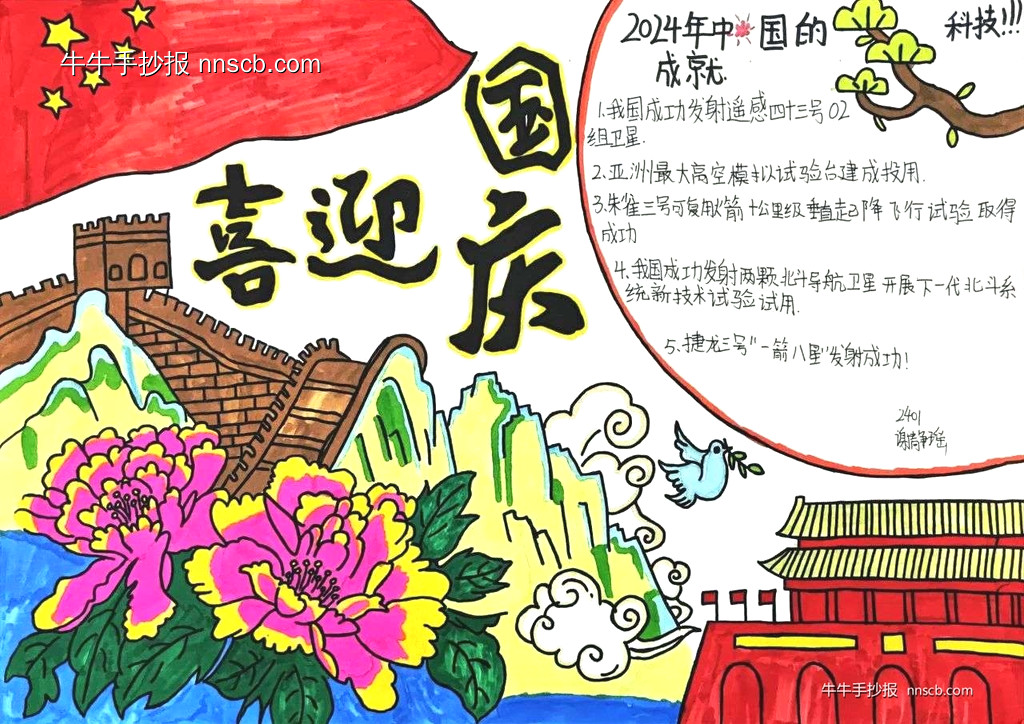 牛牛手抄报 nnscb.com
喜迎
国庆
2024年中国的 科技!!!
成就.
1.我国成功发射遥感四十三号02
组卫星.
2.亚洲最大高空模拟试验台建成投用.
3.朱雀三号可复用火箭十公里级垂直起降飞行试验取得
成功
4.我国成功发射两颗北斗导航卫星开展下一代北斗系
统新技术试验试用.
5、捷龙三号"一箭八星"发射成功!
2401
牛牛手抄报 nnscb.com